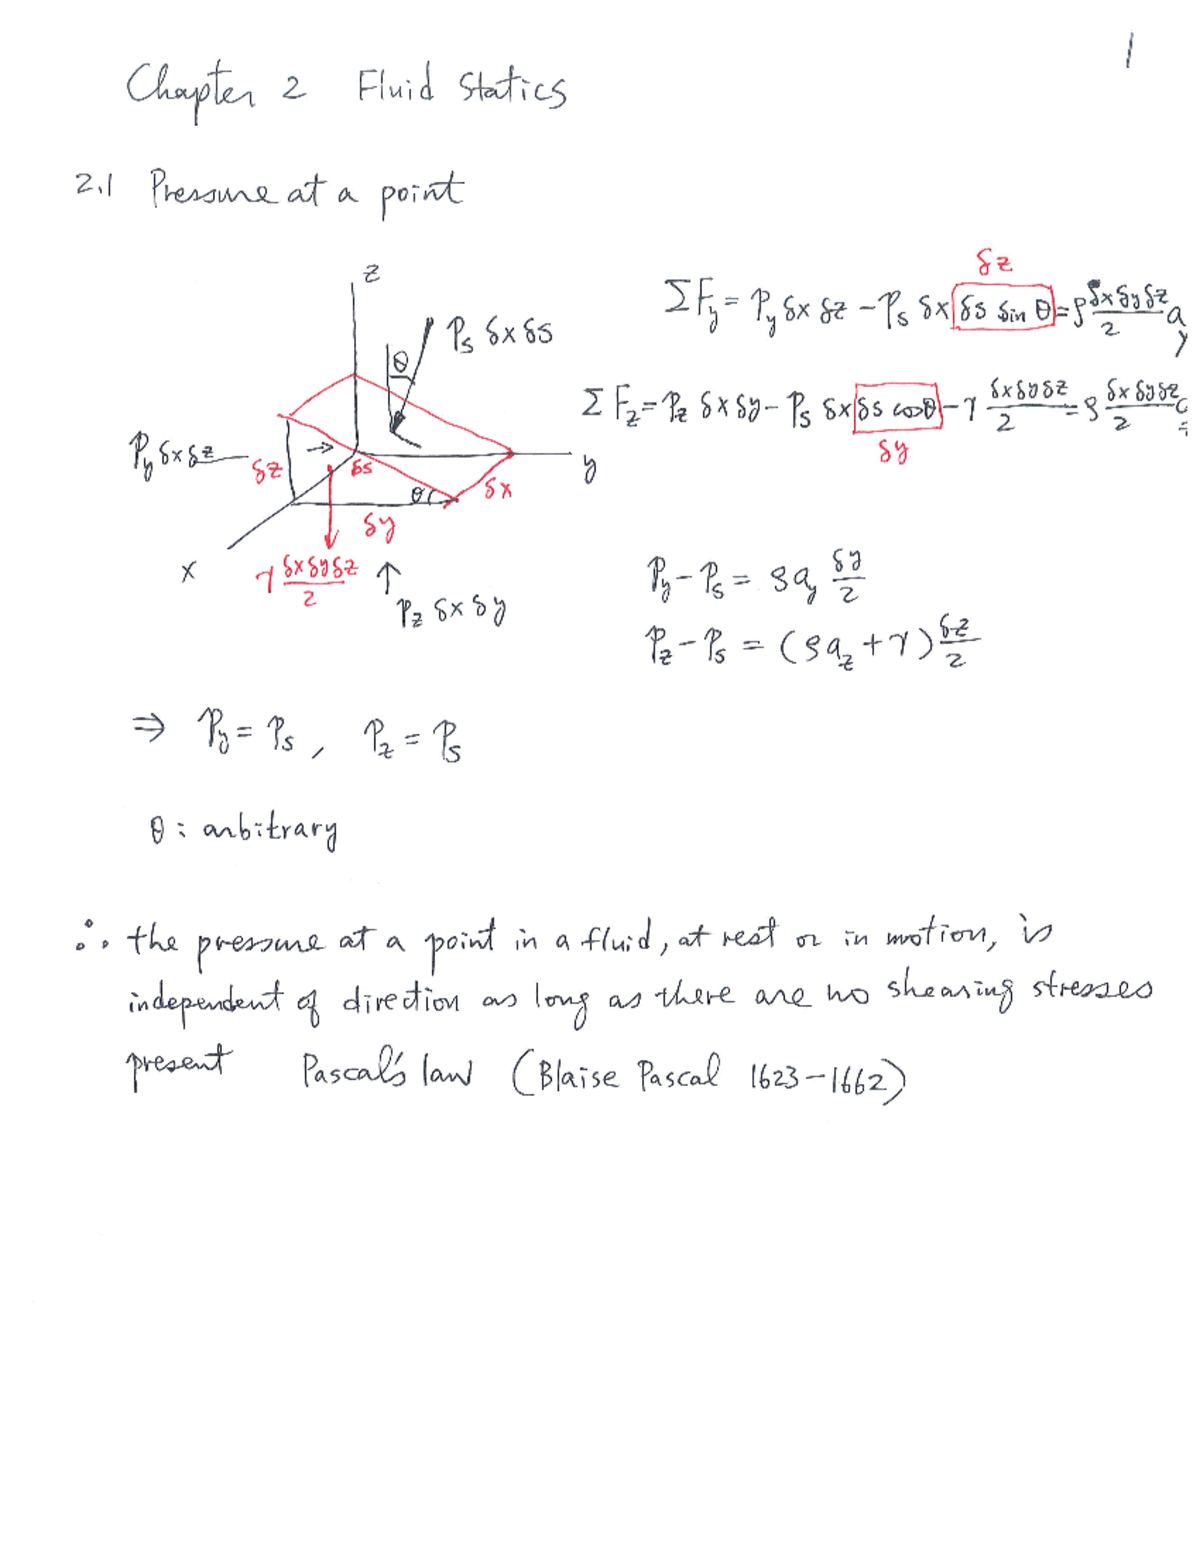 1
Chapter 2 Fluid Statics
2.1 Pressure at a point
z
δz
ΣF_y = P_y δx δz − P_s δx δs sin θ = ρ δxδyδz/2 a_y
P_s δx δs
θ
ΣF_z = P_z δx δy − P_s δx δs cosθ − γ δxδyδz/2 = ρ δxδyδz/2
δy
P_y δx δz
δz
δs
y
θ
δx
δy
x
γ δxδyδz/2
P_z δx δy
P_y − P_s = ρ a_y δy/2
P_z − P_s = (ρ a_z + γ) δz/2
⇒ P_y = P_s , P_z = P_s
θ : arbitrary
∴ the pressure at a point in a fluid, at rest or in motion, is
independent of direction as long as there are no shearing stresses
present Pascal's law (Blaise Pascal 1623−1662)